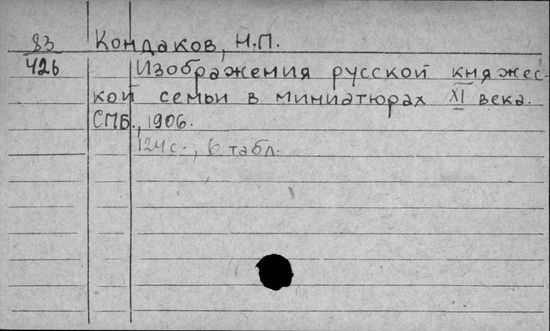 83 Кондаков, Н.П.
426 Изображения русской княжес-
кой семьи в миниатюрах XI века.
СПБ., 1906.
124 с., 6 табл.